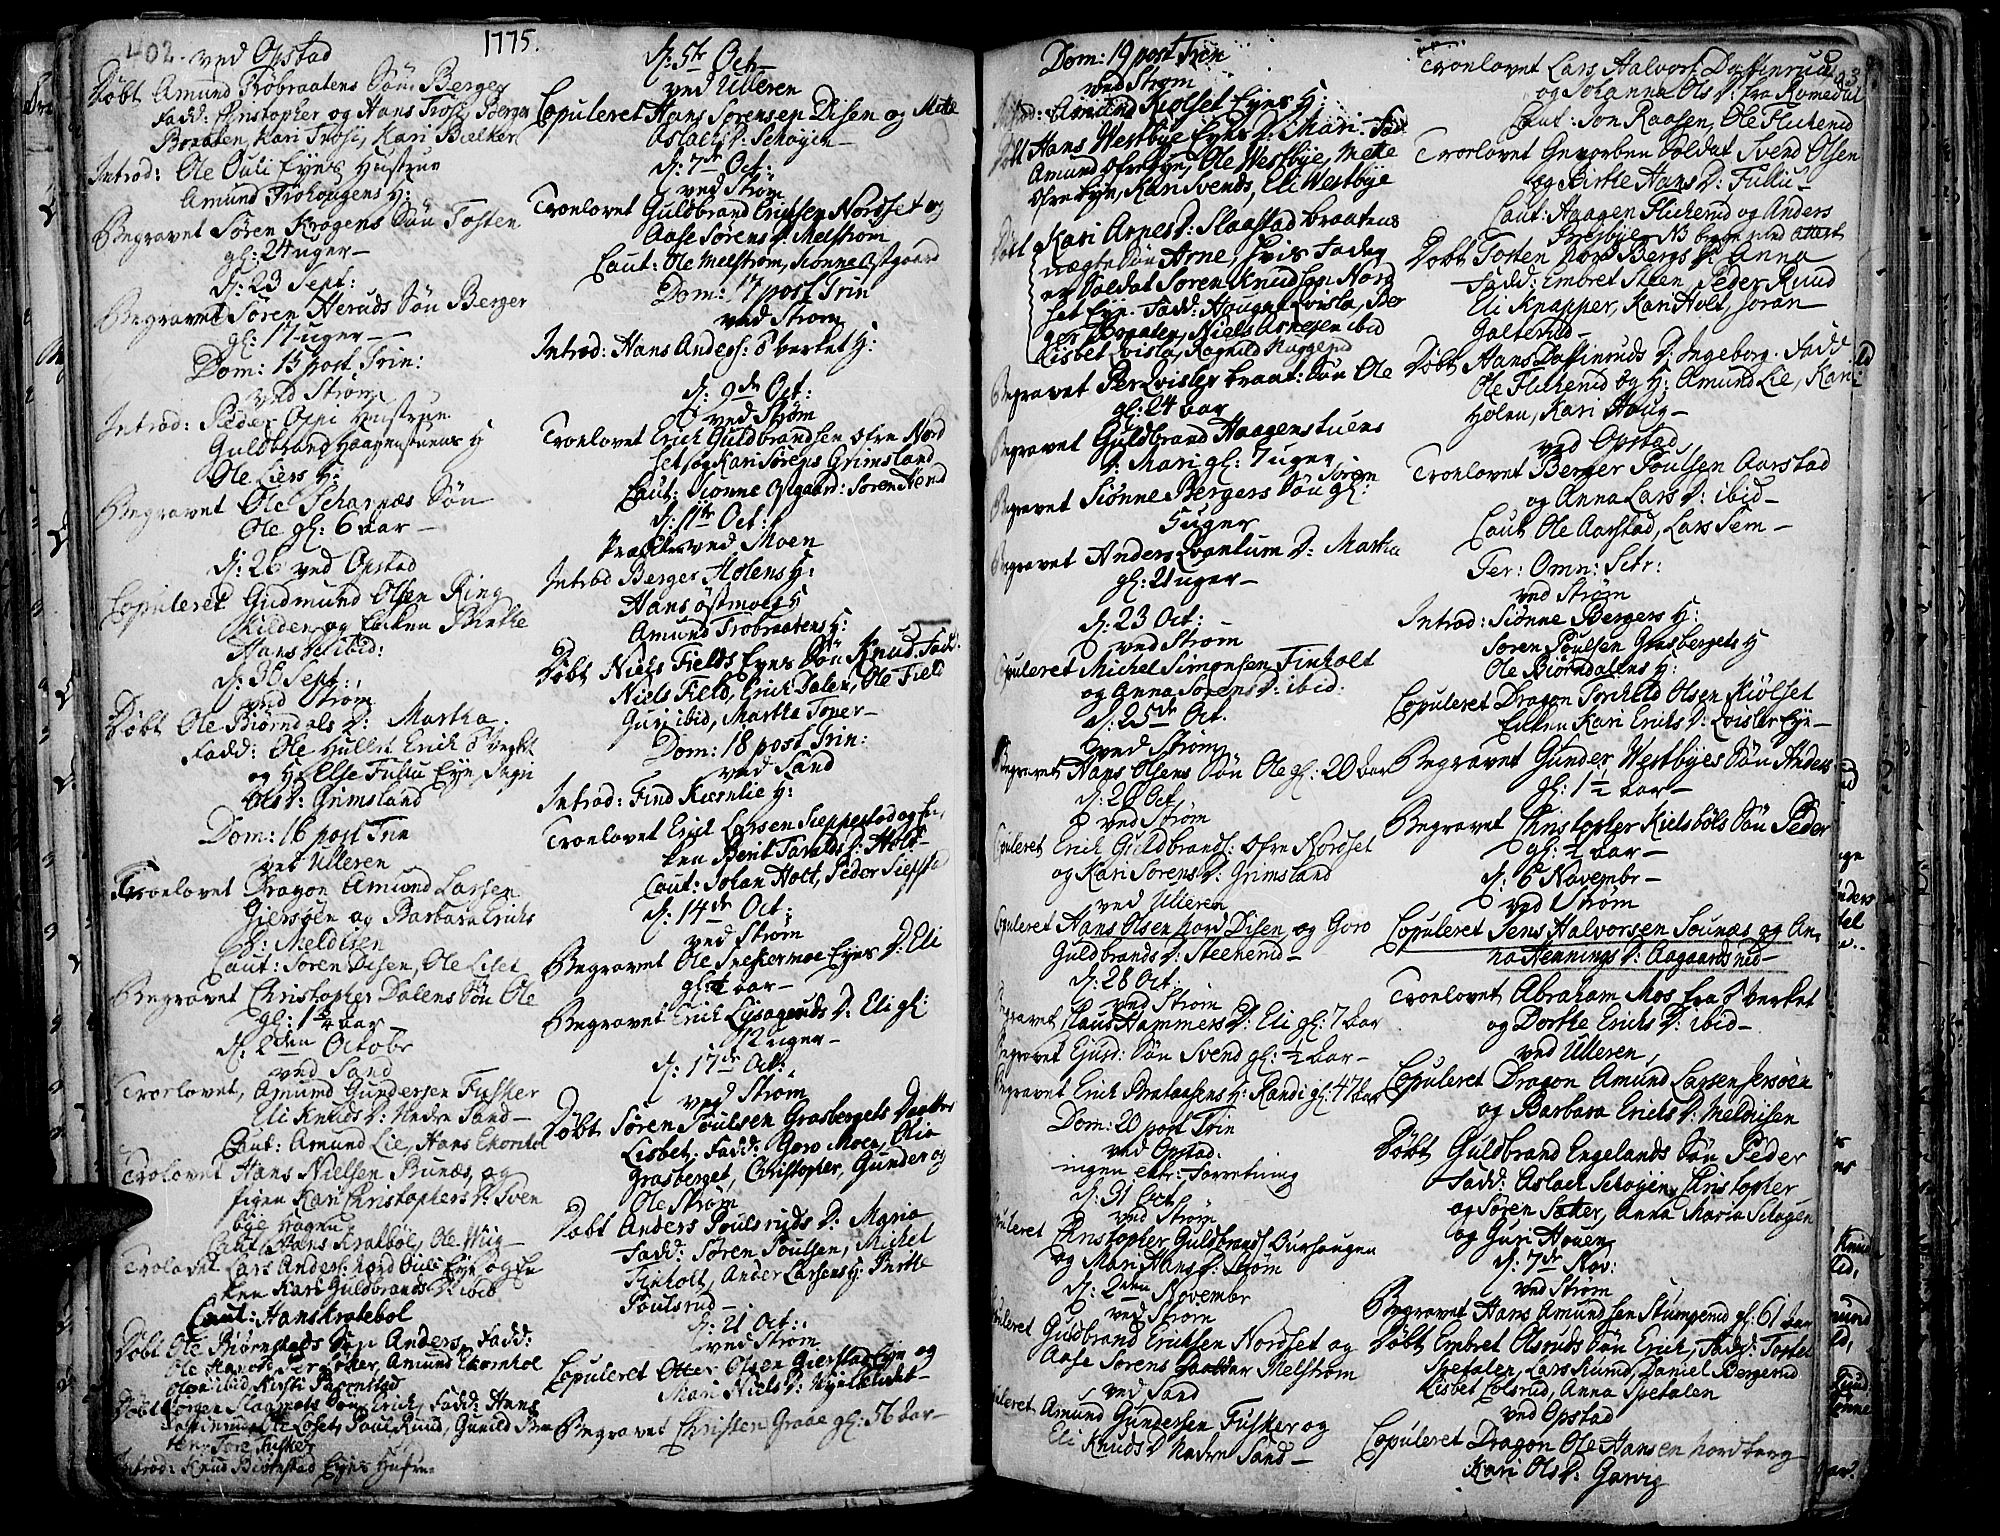 402.
1775.
ved Opstad
Døbt Amund Trøbraatens Søn Berger
Fadd: Christopher og Hans Trosi, Berger
Braaten, Kari Trosi, Kari Bælker
Introd: Ole Ouli Eyes Hustrue
Amund Trohougens H:
Begravet Søren Krogens Søn Tosten
gl: 24 uger —
d: 23 Sept:
Begravet Søren Heruds Søn Berger
gl: 17 uger —
Dom: 15 post Trin:
ved Strøm
Introd: Peder Opi Hustrue
Guldbrand Haagenstuens H
Ole Liers H:
Begravet Ole Scharnæs Søn
Ole gl: 6 aar —
d: 26 ved Opstad
Copuleret Gudmund Olsen Ring
Kilden og Enken Birthe
Hans D: ibid:
d: 30 Sept:
ved Strøm
Døbt Ole Biørndals D: Martha.
Fadd: Ole Huller Erich Ø Verket
og H: Else Fuliu Eye
Ols D: Grimsland
Dom: 16 post Trin
ved Ulleren
Troelovet Dragon Amund Larsen
Giersøen og Barbara Erichs
D: Meldisen
Caut: Søren Disen, Ole Liset
Begravet Christopher Dalens Søn Ole
gl: 1 3/4 aar —
d: 2den Octobr
ved Sand
Troelovet, Amund Gundersen Fusker
Eli Knuds D: Nedre Sand —
Caut: Amund Lie, Hans Ekornhol
Trolovet Hans Nielsen Bunæs, og
Pigen Kari Christophers D: Sven
bye Hagen
Caut Hans Kralbøl, Ole Wiig —
Trolovet Lars Anders: Nord Ouli Eye og En
ken Kari Guldbrands D: ibid
Caut: Hans Kratebøl
Døbt Ole Biørnstads Søn Anders, Fadd:
Amund Ekornhol
Olia ibid, Kirsti Parenstad
Døbt Jørgen Slaamots Søn Erich, Fadd: Hans
Ole Loset, Poul Ruud, Gunild Bra
ten, Tore Fusker
Introd: Knud Biørnstad Eyes Hustru
d: 5te Oct —
ved Ulleren
Copuleret Hans Sørensen Disen og Mette
Aslachs D: Schøyen —
d: 7de Oct:
ved Strøm
Troelovet Guldbrand Erichsen Nordset og
Aase Sørens D: Melstrøm
Caut: Ole Melstrøm, Siønne Ostgaard
Dom: 17 post Trin
ved Strøm
Introd: Hans Anders: Ø Verket H:
d: 9de Oct:
ved Strøm
Troelovet Erich Guldbrandsen Øfre Nord
set og Kari Sørens Grimsland
Caut: Siønne Ostgaard: Søren Herud
d: 11te Oct:
Præket ved Moen
Introd Berger Holens H:
Hans Østmoes H
Amund Trobraatens H:
Døbt Niels Fields Eyes Søn Knud. Fadd:
Niels Field, Erich Dalen, Ole Field
Guri ibid, Martha Toner —
Dom: 18 post Trin:
ved Sand
Introd: Find Kiernlie H:
Troelovet Erich Larsen Sieppestad og En
ken Berit Taralds D: Holt —
Caut: Johan Holt, Peder Siepstad
d: 14de Oct:
ved Strøm
Begravet Ole Snekermoe Eyes D: Eli
gl: 1 aar —
Begravet Erich Lysaguds D: Eli gl:
12 uger —
d: 17de Oct:
ved Strøm
Døbt Søren Poulsen Grasbergets Daatter
Lisbet. Fadd: Goro Moen, Olia
Grasberget, Christopher, Gunder og
Ole Strøm
Døbt Anders Poulsruds D: Maria
Fadd: Søren Poulsen, Michel
Finholt, Ander Larsens H: Birthe
Poulsrud —
d: 21 Oct:
ved Strøm
Copuleret Otter Olsen Gierstad Eye og
Mari Niels D: Nyeklicket —
Begravet Christen Graae gl: 56 aar —
Dom: 19 post Trin
ved Strøm
Introd: Amund Kiølset Eyes H:
Døbt Hans Westbye Eyes D: Mari. Fadd
Amund Ofre Eye, Ole Westbye, Mette
Ofre Eye, Kari Svends, Eli Westbye
Døbt Kari Arnes D: Slaastad braatens
uægte Søn Arne, hvis Fader
er Soldat Søren Knudsen Nord
set Eye. Fadd: Haugut Qvisla, Ber
ger Braaten, Niels Arnesen ibid
Lisbet Qvisla, Ragnild Kaggerud
Begravet Per Qvisler braat: Søn Ole
gl: 24 aar
Begravet Guldbrand Haagenstuens
D: Mari gl: 7 uger —
Begravet Siønne Bergers Søn Søren gl:
5 uger
Begravet Anders Qvantum D: Martha
gl: 21 uger —
d: 23 Oct: —
ved Strøm
Copuleret Michel Simonsen Finholt
og Anna Sørens D: ibid:
d: 25de Oct.
ved Strøm
Begravet Hans Olsens Søn Ole gl: 20 aar
d: 26 Oct
ved Strøm
Copuleret Erich Guldbrands: Ofre Nordset
og Kari Sørens D: Grimsland
ved Ulleren
Copuleret Hans Olsen Nord Disen og Goro
Guldbrands D: Steeherud —
d: 28 Oct:
ved Strøm
Begravet Claus Hammers D: Eli gl: 7 aar
Begravet Ejusd: Søn Svend gl: 1/2 aar —
Begravet Erich Brataasens H: Randi gl: 47 aar
Dom: 20 post Trin
ved Opstad:
ingen extr: Forretning
d: 31 Oct
ved Strøm
Copuleret Christopher Guldbrands: Durhougen
og Mari Hans D: Strøm
d: 2den Novembr
ved Strøm
Copuleret Guldbrand Erichsen Nordset og
Aase Sørens Daatter Melstrøm
ved Sand
Copuleret Amund Gundersen Fusker og
Eli Knuds D: Nedre Sand —
Troelovet Lars Halvors: Dattinrud
og Johanna Ols D: fra Romedal
Caut: Jon Raasen, Ole Flicherud
Troelovet Gevorben Soldat Svend Olsen
og Birthe Hans D: Fulliu —
Caut: Haagen Flicherud og Anders
Bresbye NB begge med Attest
Døbt Tosten Nord Bergs D: Anna
Fadd: Embret Skeen, Peder Ruud
Eli Knapper, Kari Holt, Joran
Galterud —
Døbt Hans Dattinruds D: Ingeborg. Fadd:
Ole Flicherud og H: Amund Lie, Kari
Holen, Kari Haug —
ved Opstad
Troelovet Berger Poulsen Aarstad
og Anna Lars D: ibid —
Caut Ole Aarstad, Lars Sem —
Fer: Omn: Sctr:
ved Strøm
Introd: Siønne Bergers H:
Søren Poulsen Grasbergets H
Ole Biørndalens H:
Copuleret Dragon Torchild Olsen Kiølset
Enken Kari Erichs D: Qvisler Eye —
Begravet Gunder Westbyes Søn Anders
gl: 1 1/2 aar —
Begravet Christopher Kielsbøls Søn Peder
gl: 1/2 aar —
d: 6 Novembr —
ved Strøm
Copuleret Jens Halvorsen Sounæs og An,
na Hennings D: Aagaards ned —
Troelovet Abraham Mos fra Ø Verket
og Dorthe Erichs D: ibid —
ved Ulleren
Copuleret Dragon Amund Larsen Jersøen
og Barbara Erichs D: Meldiisen
Døbt Guldbrand Engelands Søn Peder
Fadd: Aslach Schøyen, Christopher
og Søren Sæter, Anna Maria Schøyen
og Guri Houen
d: 7de Nov:
ved Strøm
Begravet Hans Amundsen Stumperud gl: 61 aar
Døbt Embret Olsruds Søn Erich, Fadd: Tostel
Spetalen, Lars Riund, Daniel Bergerud
Lisbet Colsrud, Anna Spetalen
ved Opstad
Copuleret Dragon Ole Hansen Nordberg
Kari Ols D: Garvig